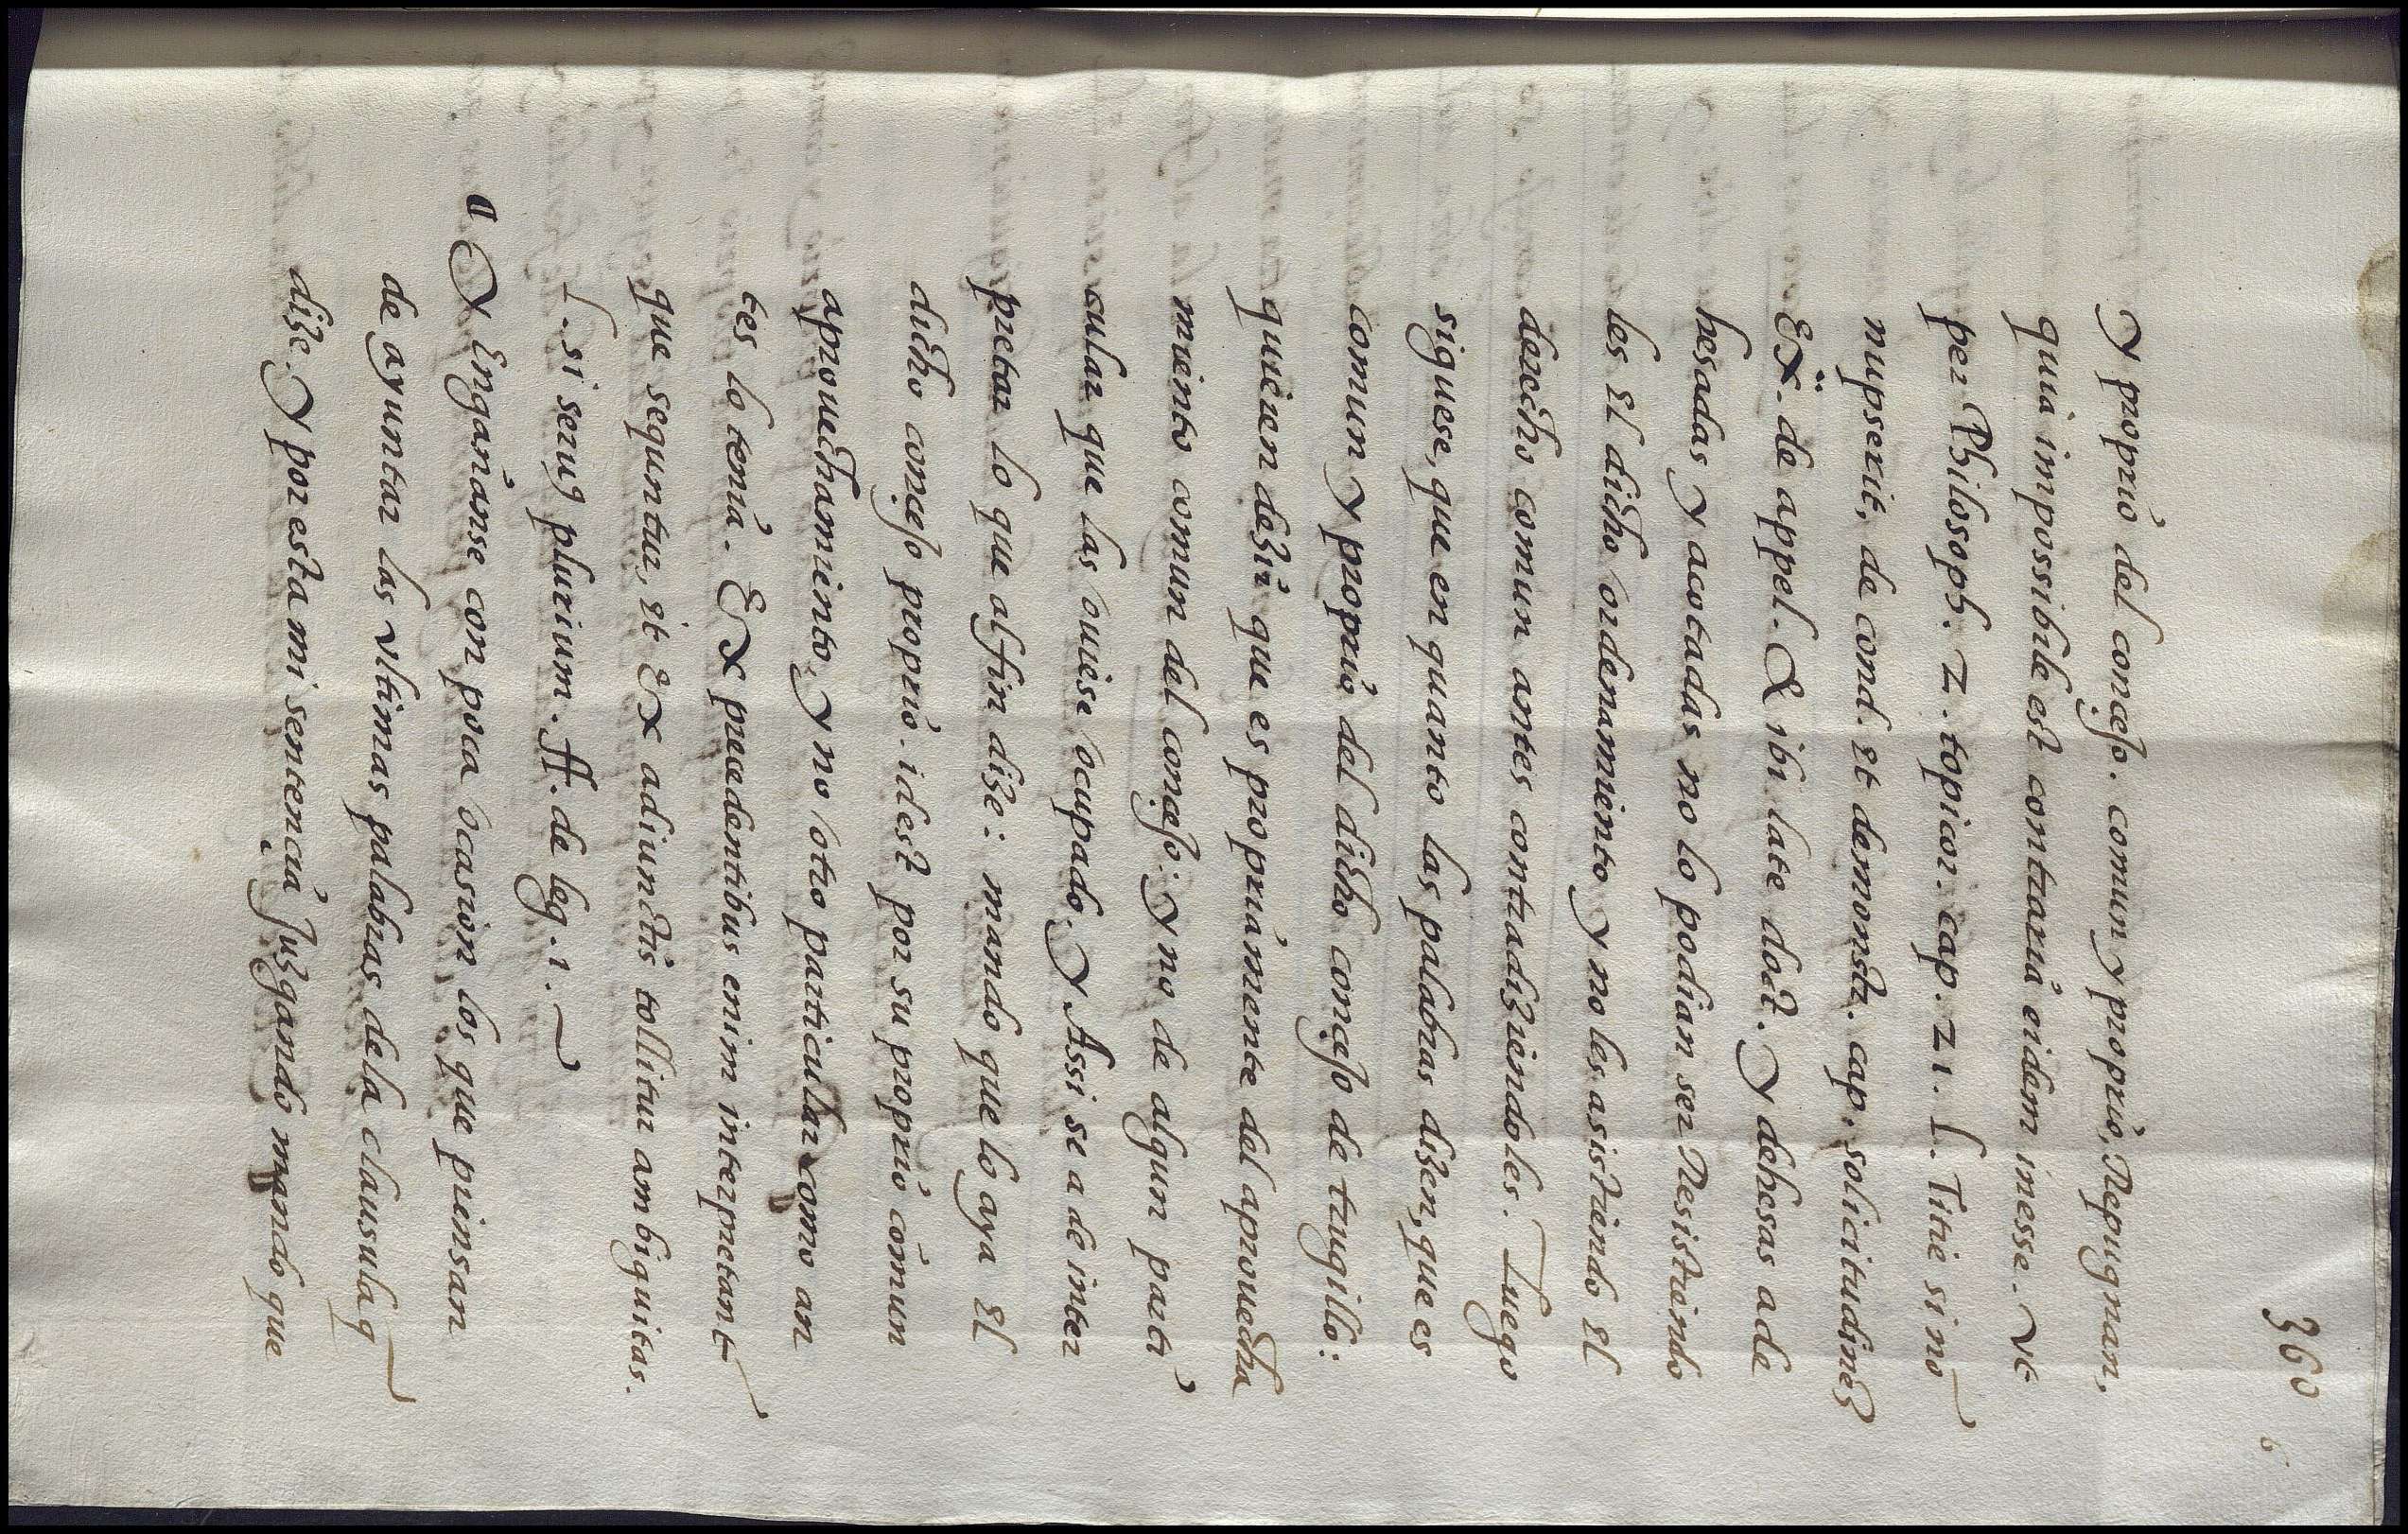 360
6
y propriò del conçejo. comun y propriò, Repugnan,
quia impossibile est contraria eidem inesse. vt
per Philosoph. 2. topicor. cap. 21. l. Titie si no
nupserit, de cond. et demonstr. cap. solicitudinẽ
EX. de appel. & ibi late doct. y dehesas ade
hesadas y acotadas no lo podian ser Resistiendo
les el dicho ordenamiento y no les asistiendo el
derecho comun antes contradiziendoles. Luego
siguese, que en quanto las palabras dizen, que es
comun y propriò del dicho conçejo de trugillo:
quieren dezir que es propriamente del aprouecha
miento comun del conçejo: y no de algun parti
cular que las ouiese ocupado. y Assi se a de inter
pretar lo que al fin dize: mando que lo aya el
dicho conçejo propriò. idest por su propriò comun
aprouechamiento, y no otro particular como an
tes lo tenia. EX precedentibus enim interpretant
que sequntur, et EX adiunctis tollitur ambiguitas.
l. si seruꝰ plurium. ff. de leg. 1.
Y Engañanse con poca ocasion los que piensan
de ayuntar las vltimas palabras dela clausula q
dize. Y por esta mi sentençia Juzgando mando que